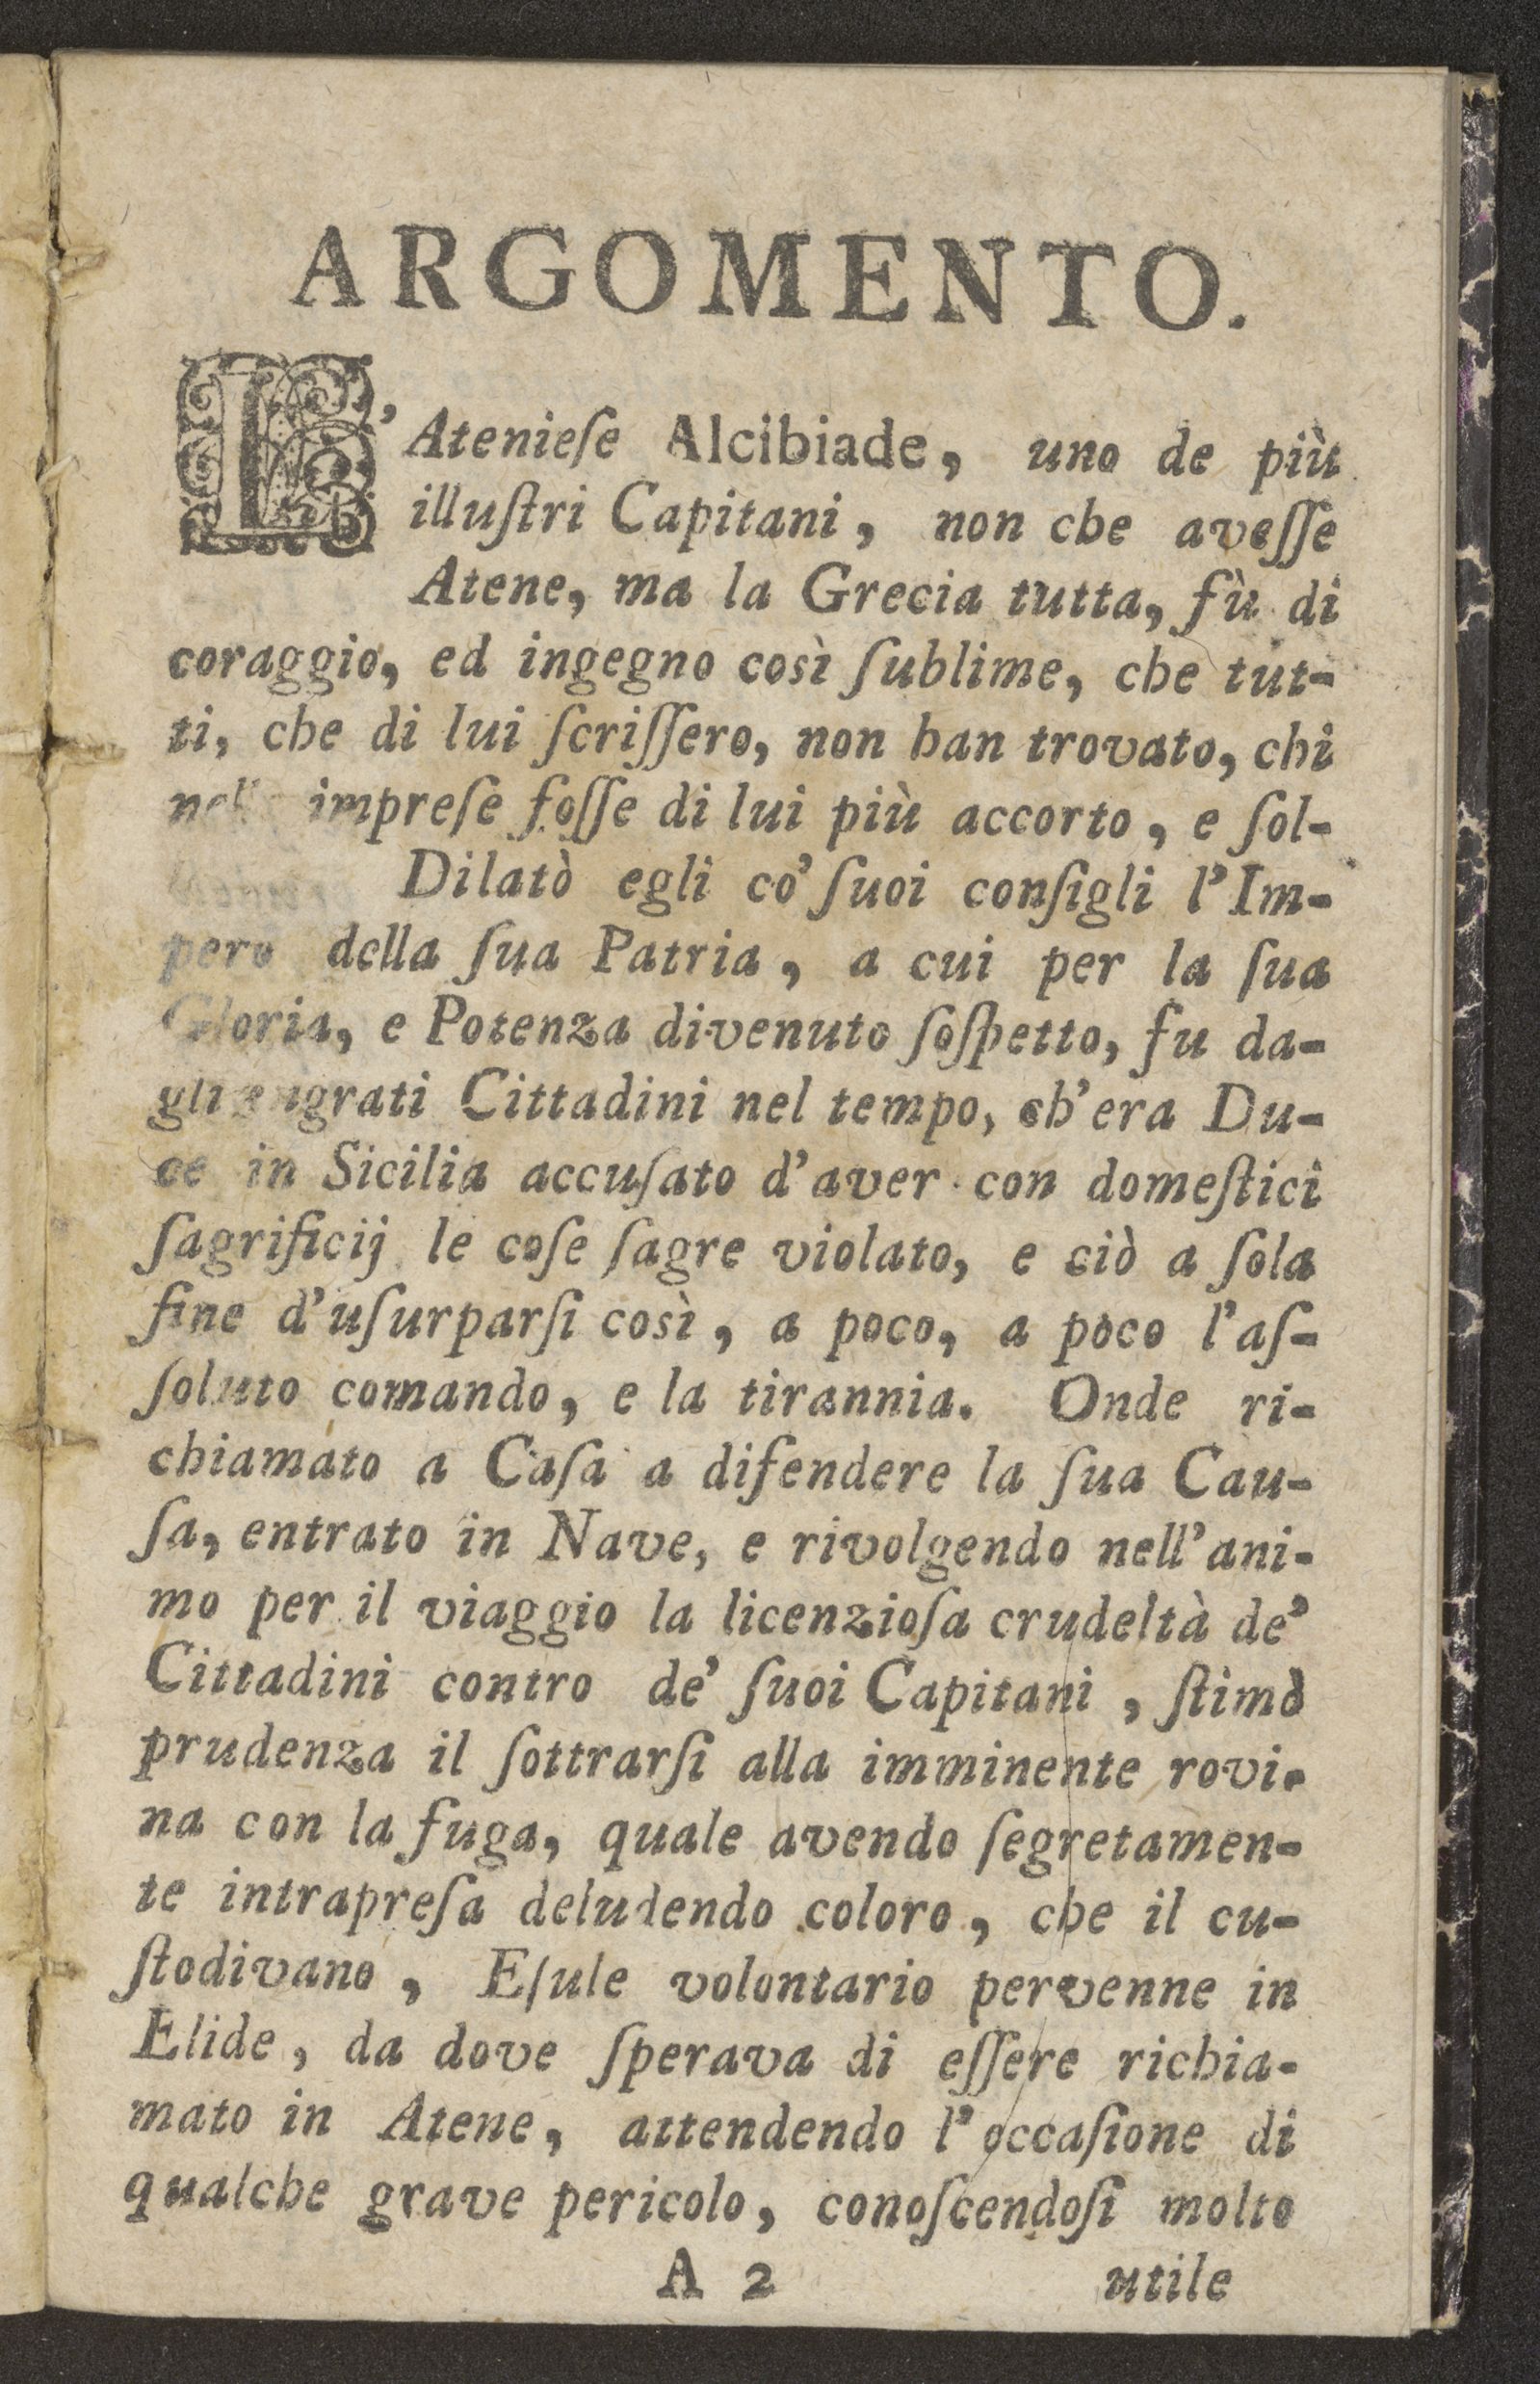 ARGOMENTO.
L'Atenieſe Alcibiade, uno de più
illuſtri Capitani, non che aveſſe
Atene, ma la Grecia tutta, fù di
coraggio, ed ingegno così ſublime, che tut-
ti, che di lui ſcriſſero, non han trovato, chi
impreſe foſſe di lui più accorto, e ſol-
Dilatò egli co' ſuoi conſigli l'Im-
pero della ſua Patria, a cui per la ſua
Gloria, e Potenza divenuto ſoſpetto, fu da-
gli ingrati Cittadini nel tempo, ch'era Du-
ce in Sicilia accuſato d'aver con domeſtici
ſagrificij le coſe ſagre violato, e ciò a ſola
fine d'uſurparſi così, a poco, a poco l'aſ-
ſoluto comando, e la tirannia. Onde ri-
chiamato a Caſa a difendere la ſua Cau-
ſa, entrato in Nave, e rivolgendo nell'ani-
mo per il viaggio la licenzioſa crudeltà de'
Cittadini contro de' ſuoi Capitani, ſtimò
prudenza il ſottrarſi alla imminente rovi-
na con la fuga, quale avendo ſegretamen-
te intrapreſa deludendo coloro, che il cu-
ſtodivano, Eſule volontario pervenne in
Elide, da dove ſperava di eſſere richia-
mato in Atene, attendendo l'occaſione di
qualche grave pericolo, conoſcendoſi molto
A 2 utile